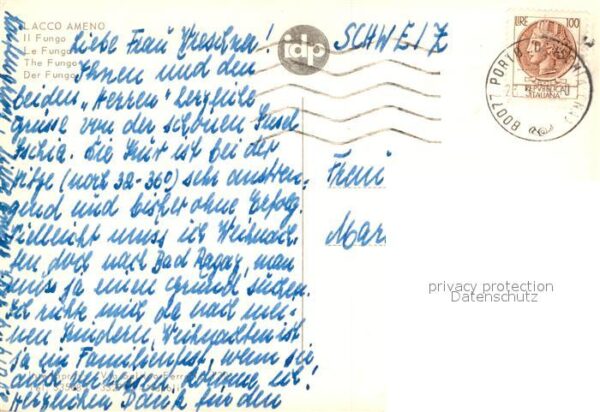 LACCO AMENO
Il Fungo
Le Fungo
The Fungo
Der Fungo
idp
SCHWEIZ
LIRE 100
REPUBBLICA
ITALIANA
80071 PORTO
Liebe Frau
Ihnen und den
beiden "Herren" herzliche
Grüsse von der schönen Insel
Ischia. Die Kur ist bei der
Hitze (noch 32-36°) sehr anstren-
gend und bisher ohne Erfolg.
Vielleicht muss ich Weihnach-
ten doch nach Bad Ragaz, man
muss ja einen Grund suchen.
Ich richte mich da nach mei-
nen Kindern, Weihnachten ist
ja ein Familienfest, wenn sie
auch verreisen, komme ich!
Herzlichen Dank für den
Frau
Mar
privacy protection
Datenschutz